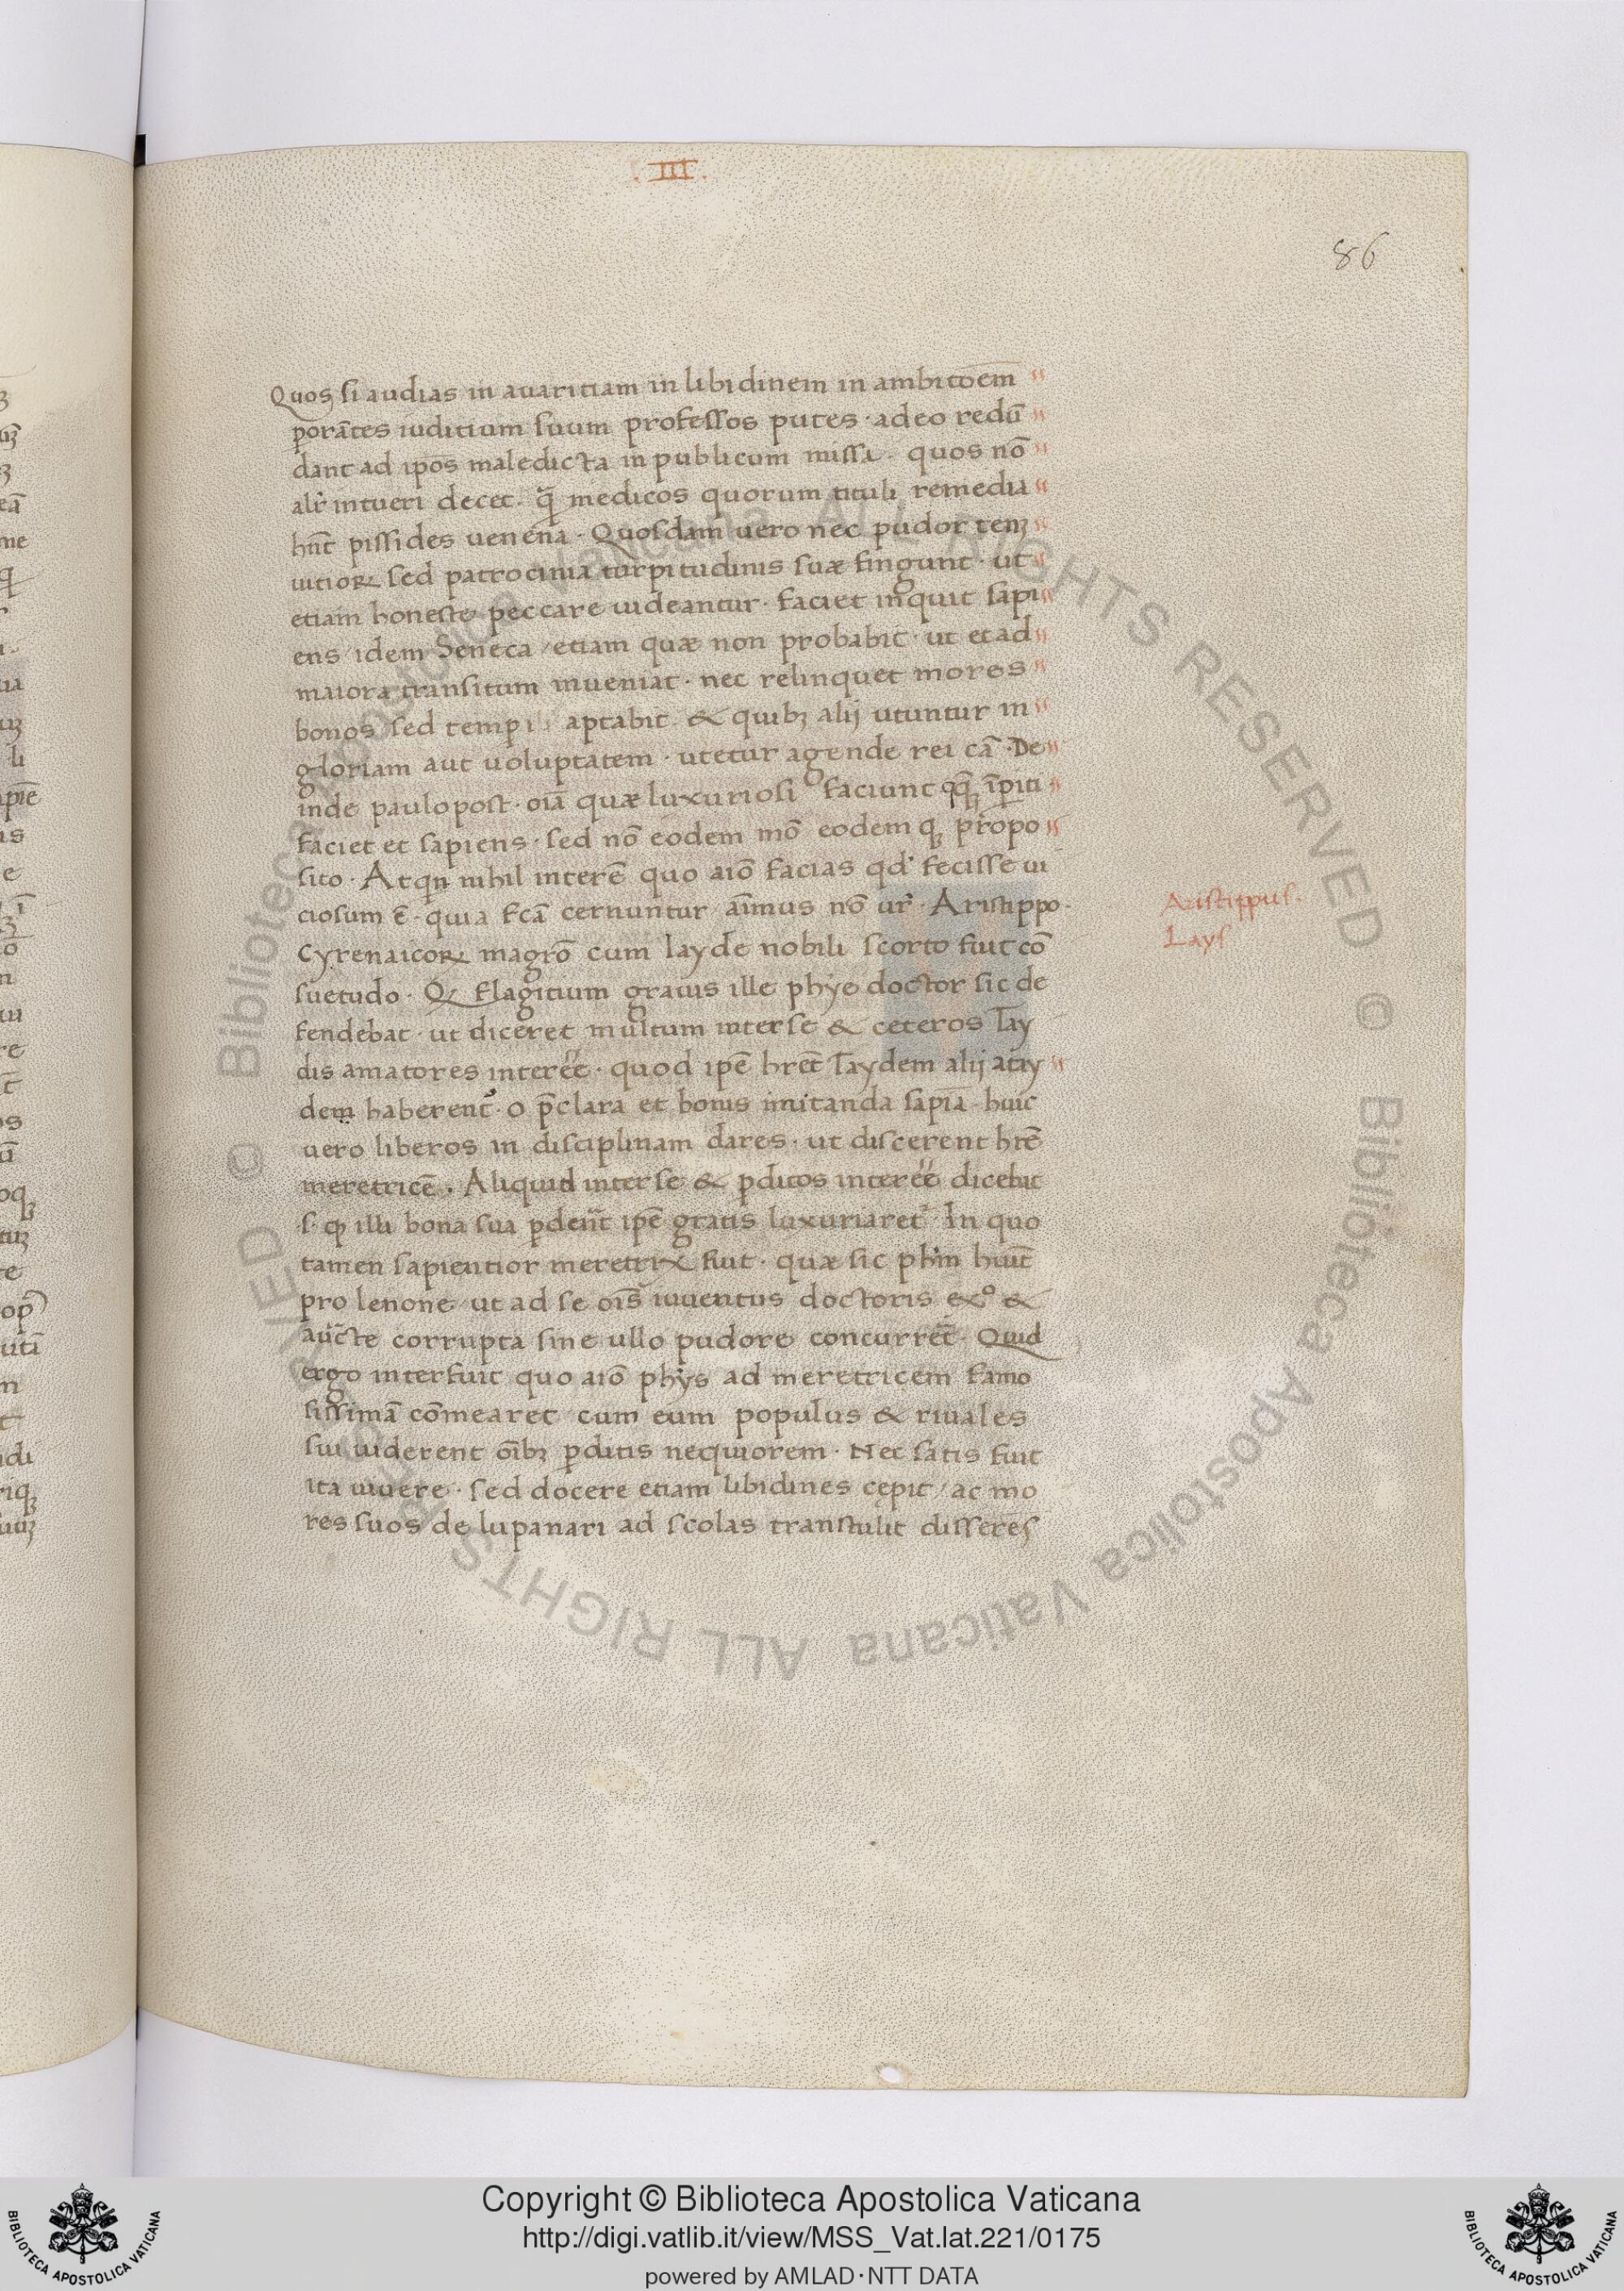 .III.
86
Quos si audias in avaritiam in libidinem in ambitōem
ꝑorātes iuditium suum professos putes · adeo redū
dant ad ip̄os maledicta in publicum missa · quos nō
alr̄ intueri decet · q̄ medicos quorum tituli remedia
hn̄t pissides uenena · Quosdam uero nec pudor tenꝫ
uitioꝝ sed patrocinia turpitudinis suæ fingunt · ut
etiam honeste peccare uideantur · faciet inquit sapi
ens / idem Seneca / etiam quæ non probabit · ut et ad
maiora transitum inueniat · nec relinquet mores
bonos sed aptabit · & quibꝫ alij utuntur in
gloriam aut uoluptatem · utetur agende rei cā · De
inde paulo post · oīa quæ luxuriosi faciunt q̄qꝫ īperiti
faciet et sapiens · sed nō eodem mō eodem qꝫ propo
sito · Atqn nihil interē quo aīo facias qd' fecisse ui
ciosum ē · quia fcā cernuntur / aīmus nō ur̄ · Aristippo ·
Cyrenaicoꝝ magrō cum layde nobili scorto fuit cō
suetudo · Qꝫ flagitium grauis ille phye doctor sic de
fendebat · ut diceret multum inter se & ceteros Lay
dis amatores interēē · quod ipē hrēt Laydem alij a lay
dem haberent᷑ · o p̄clara et bonis imitanda sapīa · huic
uero liberos in disciplinam dares · ut discerent hrē
meretricē · Aliquid inter se & ꝑditos interēē dicebat
·s· ꝙ illi bona sua ꝑderēt ipē gratis luxuriaret᷑ · In quo
tamen sapientior meretrix fuit · quæ sic phm huīt
pro lenone / ut ad se oīs iuuentus doctoris exº &
aūcte corrupta sine ullo pudore concurrēt · Quid
ergo interfuit quo aīo phys ad meretricem famo
sissimā cōmearet / cum eum populus & riuales
sui uiderent oībꝫ ꝑditis nequiorem · Nec satis fuit
ita uiuere · sed docere etiam libidines cępit / ac mo
res suos de lupanari ad scolas transtulit disserēs
Aristippus.
Lays
Copyright © Biblioteca Apostolica Vaticana
http://digi.vatlib.it/view/MSS_Vat.lat.221/0175
powered by AMLAD·NTT DATA
BIBLIOTECA APOSTOLICA VATICANA
BIBLIOTECA APOSTOLICA VATICANA
© Biblioteca Apostolica Vaticana ALL RIGHTS RESERVED © Biblioteca Apostolica Vaticana ALL RIGHTS RESERVED